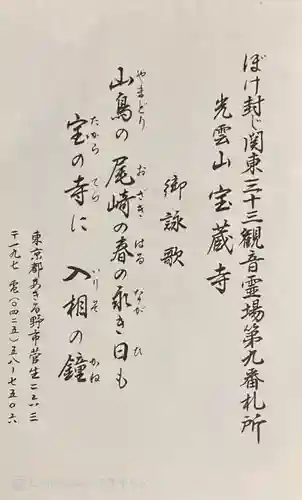 ぼけ封じ関東三十三観音霊場第九番札所
光雲山宝蔵寺
御詠歌
山鳥の尾崎の春の永き日も
やまどり おざき はる なが ひ
宝の寺に入相の鐘
たから てら いりそ かね
東京都あきる野市菅生二六三
〒一九七 電(〇四二五)五八ー七五〇六